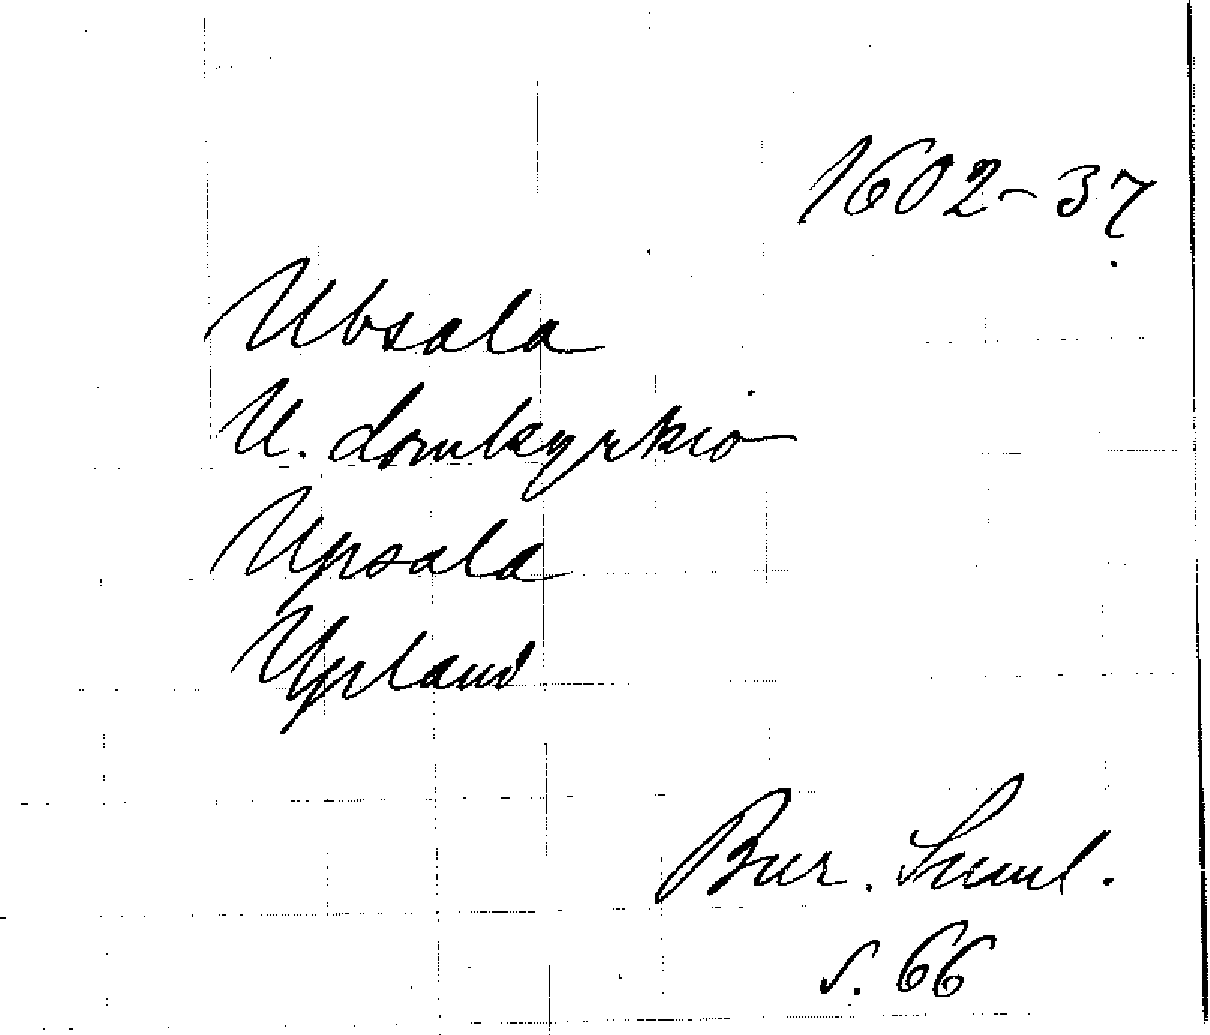 1602-37.
Ubsala
U. domkyrkio
Upsala
Upland
Bur. Suml.
s. 66